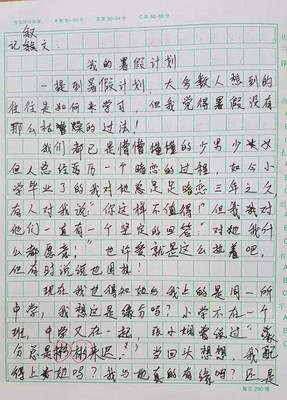 叙
记敘文
我的暑假计划
一提到暑假计划，大多数人想到的
往往是如何来学习，但我觉得暑假没有
那么枯燥的过法！
我们都已是懵懵懂懂的少男少女
但人总经历一个暗恋的过程，如今小
学毕业了的我对她足足暗恋三年之久
有人对我说"你这样不值得！"但我对
他们一直有一个坚定的回答"对她我什
么都愿意！"也许爱就是这么执着吧，
但有时说说也困扰！
现在我也得知她与我上的是同一所
中学，我想这是缘分吗？小学不在一个
班，中学又在一起，张小娴曾说过"缘
分总是姗姗来迟。"当回头想想，我配
得上她吗？我与她真的有缘吗？还是